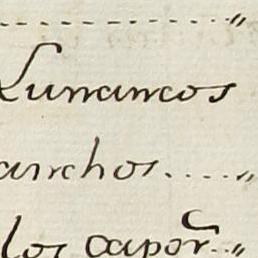 .............."
Lunancos
anchos....."
los capor..."